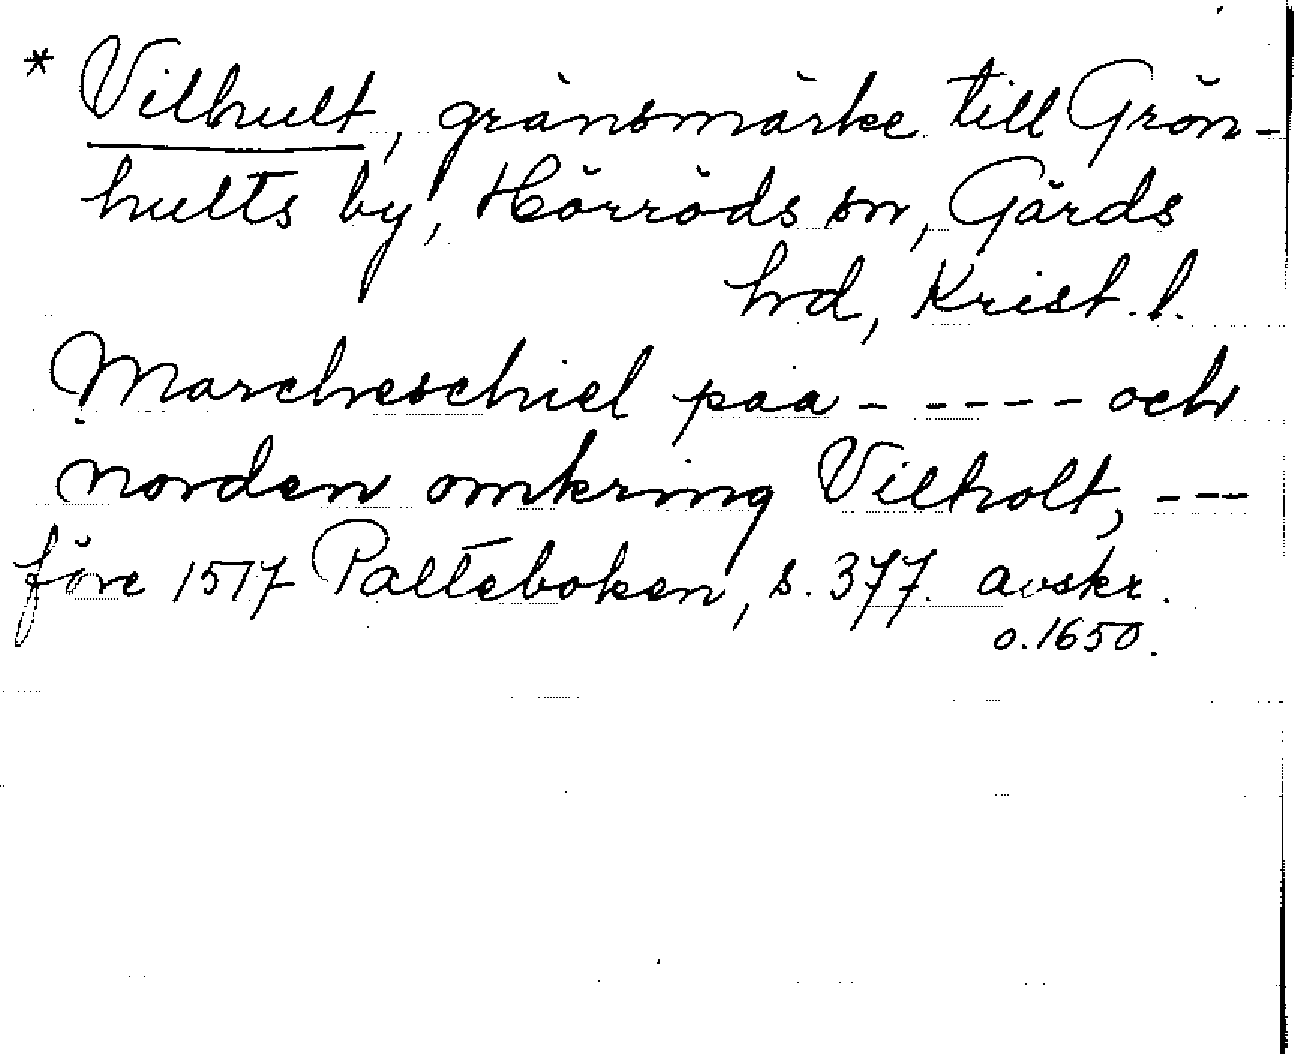 * Vilhult, gränsmärke till Grön-
hults by, Hörröds sn, Gärds
hrd, Krist. l.
Marcheschiel paa - - - - - och
norden omkring Vilholt, ---
före 1517 Palteboken, s. 377. avskr.
o. 1650.